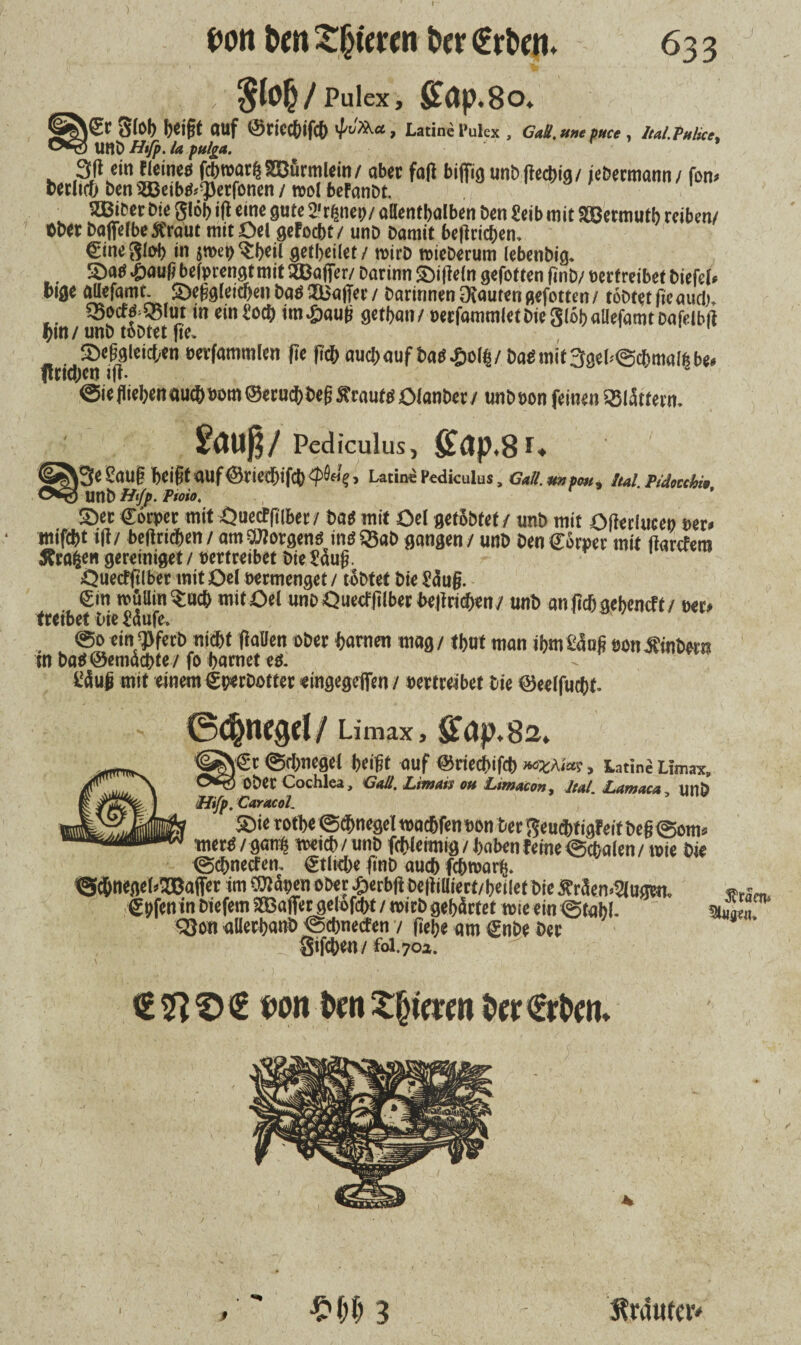 von den Thieren der Erden. 633
Floh / Pulex, Cap. 80.
Er Floh heißt auf Griechisch ψύλλα, Latinè Pulex, Gall. une puce, Ital. Pulice,
und Hisp. la pulga.
Ist ein kleines schwartz Würmlein / aber fast bissig und stechig / jedermann / son-
derlich den Weibs-Personen / wol bekandt.
Wider die Flöh ist eine gute Artzney / allenthalben den Leib mit Wermuth reiben /
oder dasselbe Kraut mit Oel gekocht / und damit bestrichen.
Eine Floh in zwey Theil getheilet / wird wiederum lebendig.
Das Hauß besprengt mit Wasser / darinn Disteln gesotten sind / vertreibet diesel-
bige allesamt. Deßgleichen das Wasser / darinnen Rauten gesotten / tödtet sie auch.
Bocks-Blut in ein Loch im Hauß gethan / versammlet die Flöh allesamt daselbst
hin / und tödtet sie.
Deßgleichen versammlen sie sich auch auf das Holtz / das mit Igel-Schmaltz be-
strichen ist.
Sie fliehen auch vom Geruch deß Krauts Olander / und von seinen Blättern.
Lauß / Pediculus, Cap. 81.
Ie Lauß heißt auf Griechisch Φθεὶρ, Latinè Pediculus, Gall. un pou, Ital. Pidocchio,
und Hisp. Pioio.
Der Cörper mit Quecksilber / das mit Oel getödtet / und mit Osterlucey ver-
mischt ist / bestrichen / am Morgens ins Bad gangen / und den Cörper mit starckem
Kratzen gereiniget / vertreibet die Läuß.
Quecksilber mit Oel vermenget / tödtet die Läuß.
Ein wüllin Tuch mit Oel und Quecksilber bestrichen / und an sich gehenckt / ver-
treibet die Läuse.
So ein Pferd nicht stallen oder harnen mag / thut man ihm Läuß von Kindern
in das Gemächte / so harnet es.
Läuß mit einem Eyerdotter eingegessen / vertreibet die Geelsucht.
Schnegel / Limax, Cap. 82.
Er Schnegel heißt auf Griechisch κοχλίας, Latinè Limax,
oder Cochlea, Gall. Limats ou Limacon, Ital. Lamaca, und
Hisp. Caracol.
Die rothe Schnegel wachsen von der Feuchtigkeit deß Som-
mers / gantz weich / und schleimig / haben keine Schalen / wie die
Schnecken. Etliche sind auch schwartz.
Schnegel-Wasser im Mäyen oder Herbst destilliert / heilet die Kräen-Augen.
Kräen-
Augen.
Eysen in diesem Wasser gelöscht / wird gehärtet wie ein Stahl.
Von allerhand Schnecken / siehe am Ende der
Fischen / fol. 702.
ENDE von den Thieren der Erden.
Hhh 3 Kräuter-